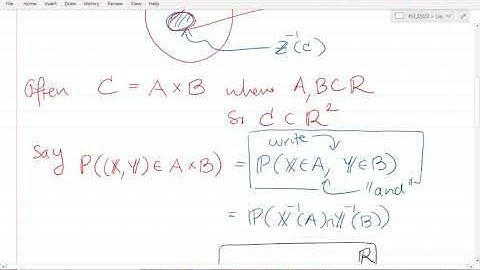 File Home Insert Draw History Review View Help
Z⁻¹(C)
Often C = A × B where A, B ⊂ ℝ
So C ⊂ ℝ²
write
Say P((X,Y) ∈ A × B) = P(X ∈ A, Y ∈ B)
"and"
= P(X⁻¹(A) ∩ Y⁻¹(B))
ℝ